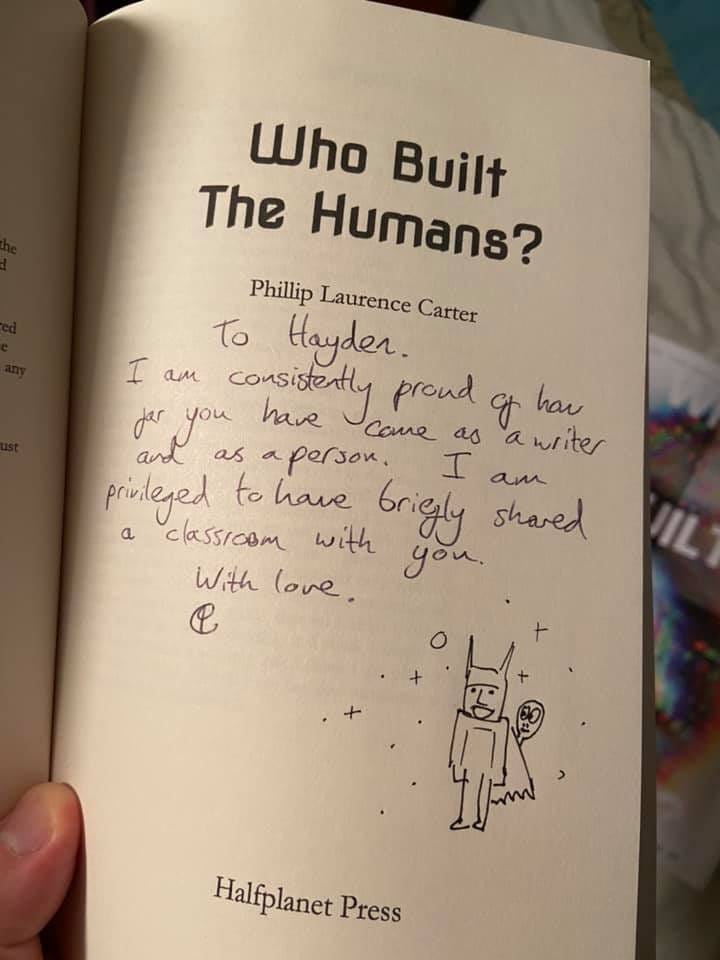 the
d
red
e
any
ust
Who Built
The Humans?
Phillip Laurence Carter
To Hayden.
I am consistently proud of how
far you have come as a writer
and as a person. I am
privileged to have briefly shared
a classroom with you.
With love.
Halfplanet Press
UILT